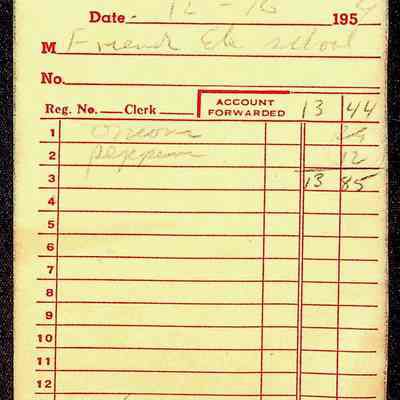 Date. 12 - 16 1954
M Friend Ele school
No.
Reg. No. Clerk ACCOUNT FORWARDED 13 44
1 onions 29
2 peppers 12
3 13 85
4
5
6
7
8
9
10
11
12